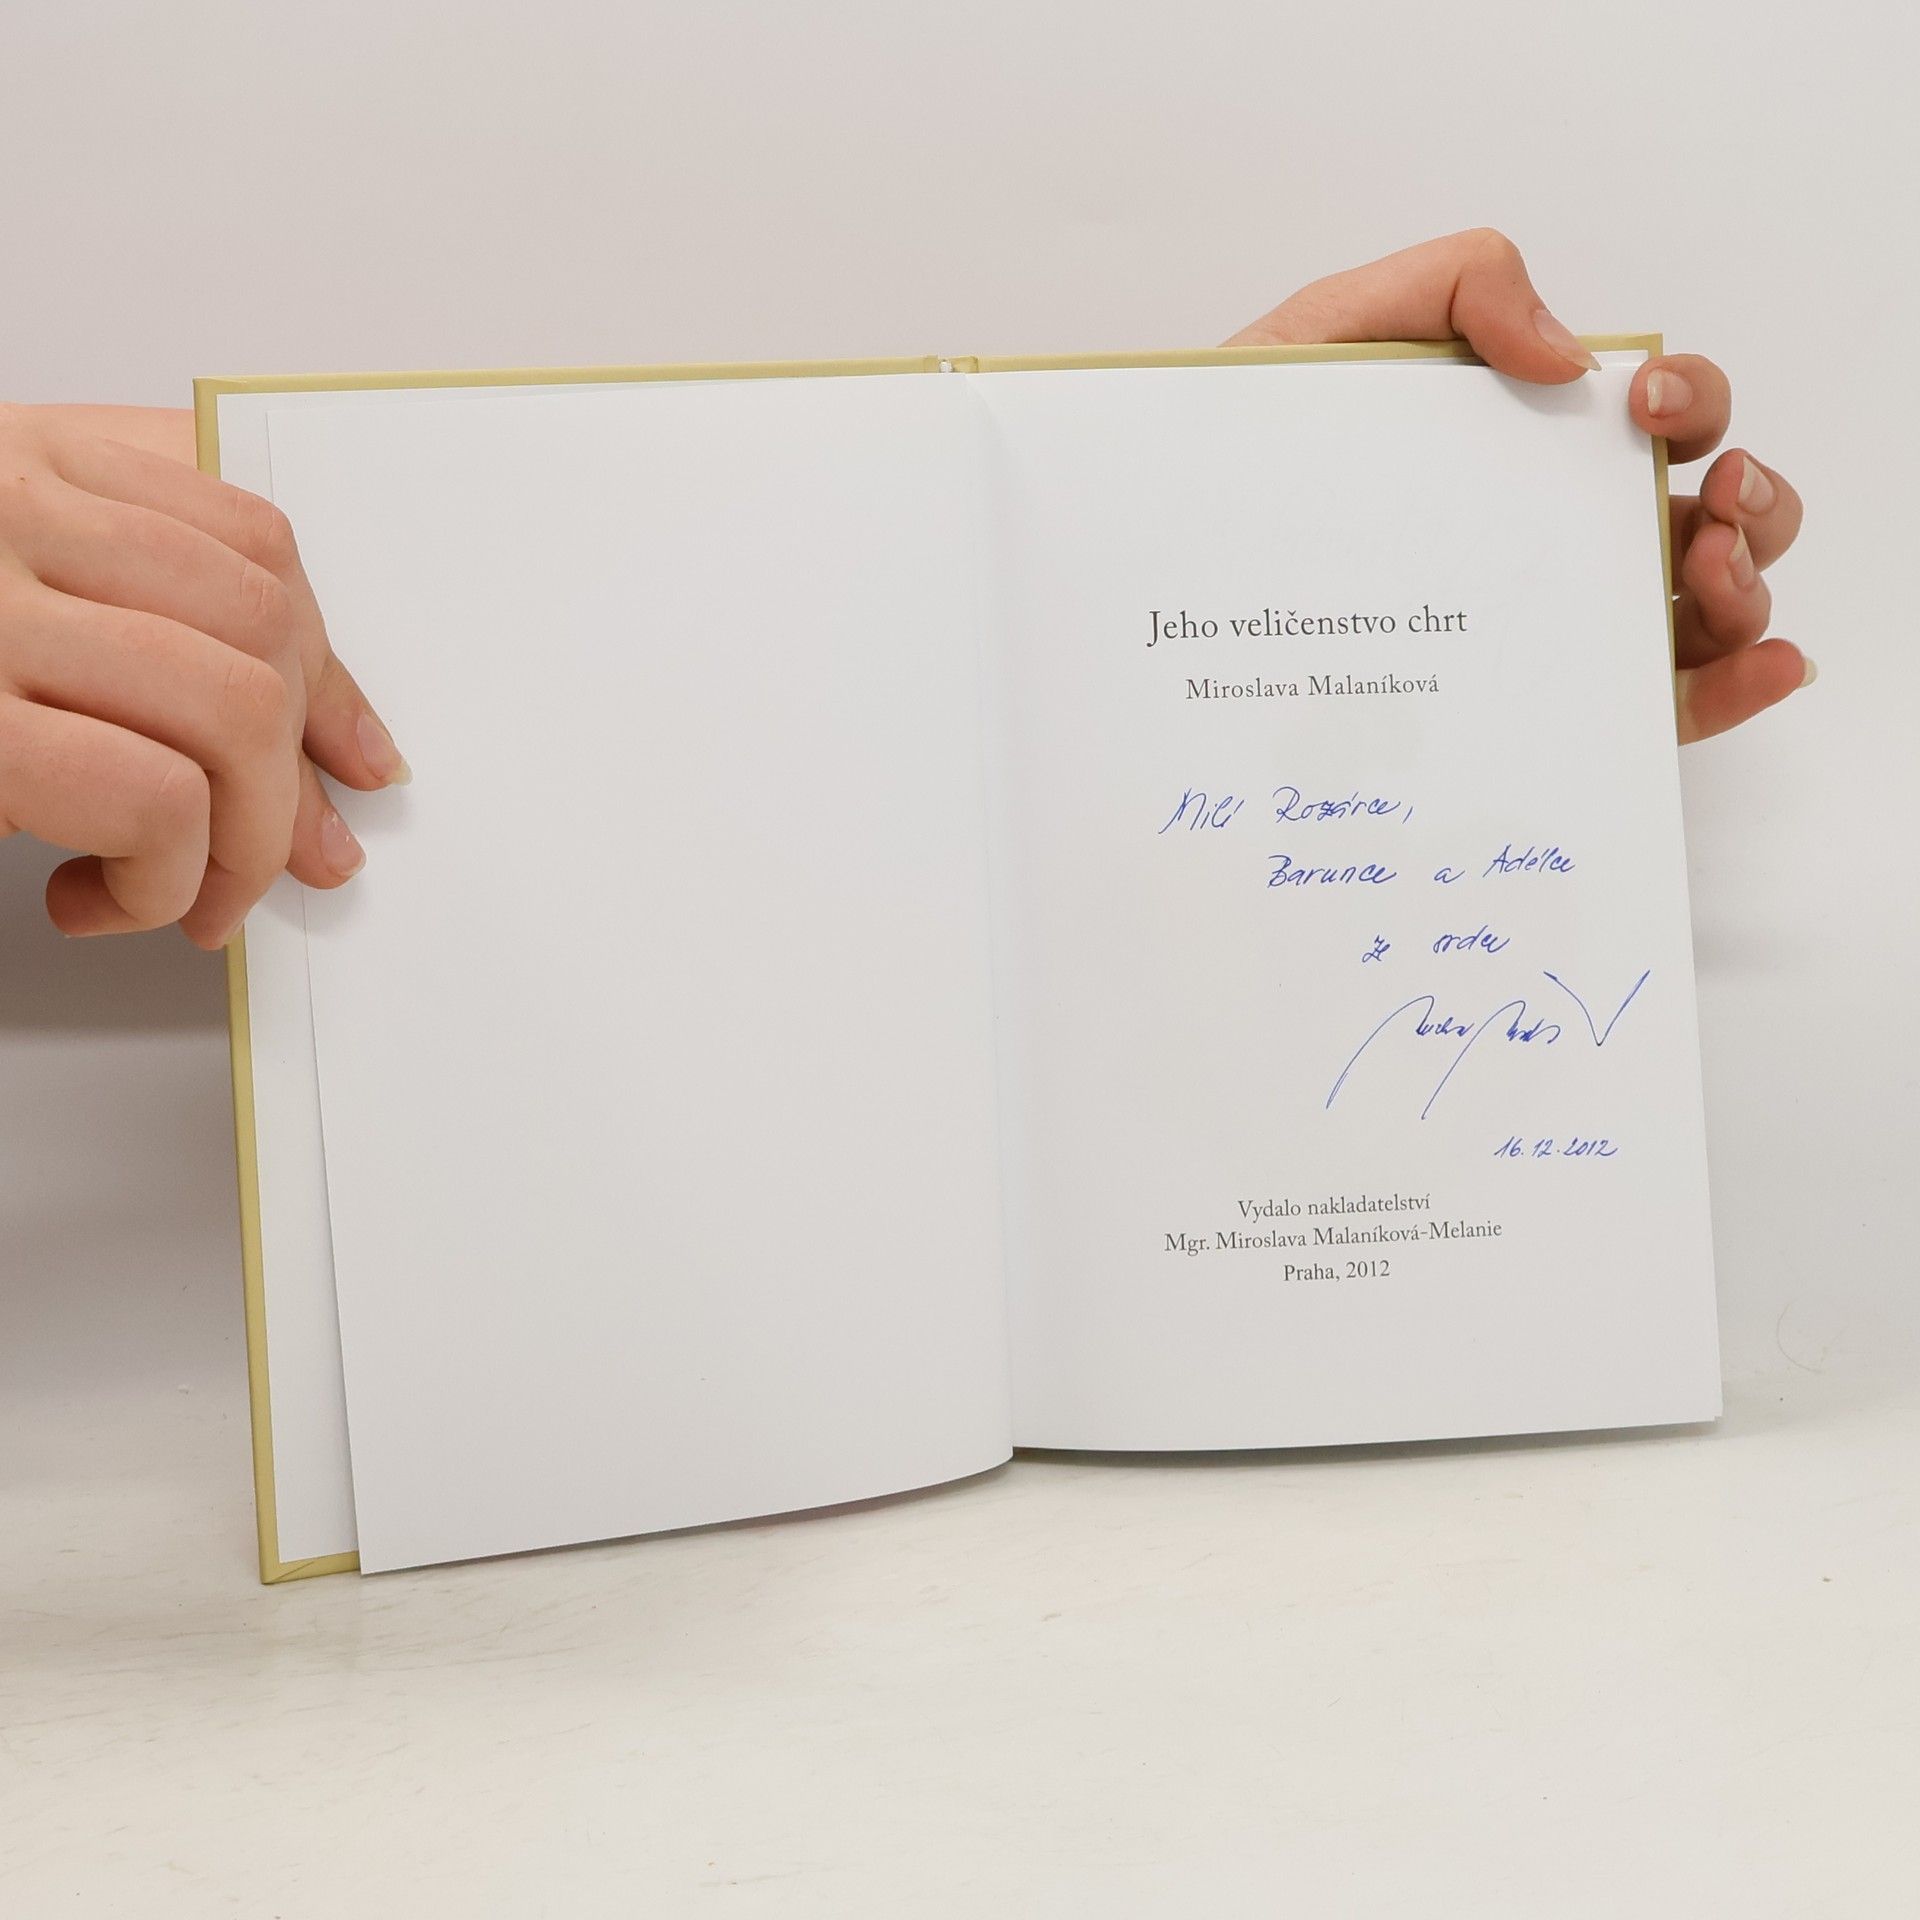 Jeho veličenstvo chrt
Miroslava Malaníková
Milé Rozárce,
Barunce a Adélce
ze srdce
16.12.2012
Vydalo nakladatelství
Mgr. Miroslava Malaníková-Melanie
Praha, 2012